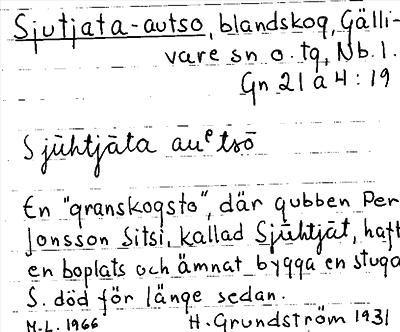 Sjutjata-autso, blandskog, Gälli-
vare sn o. tg, Nb. l.
Gn 21 a 4 : 19
Sjūhtjāta auᵉtsō
En "granskogsto", där gubben Per
Jonsson Sitsi, kallad Sjūhtjāt, haft
en boplats och ämnat bygga en stuga
S. död för länge sedan.
M.L. 1966 H. Grundström 1931